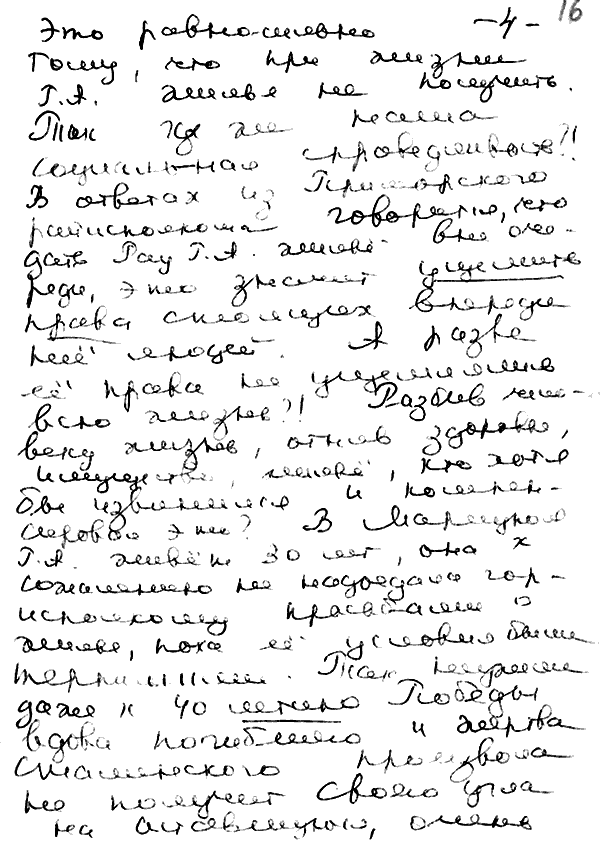 16
Это равносильно -4-
тому, что при жизни
Г.А. жилье не получить.
Так где же наша
социальная справедливость?!
В ответах из Приморского
райисполкома говорится, что
дать Рау Г.А. жильё вне оче-
реди, это значит ущемить
права стоящих впереди
неё людей. А разве
её права не ущемлялись
всю жизнь?! Разбив чело-
веку жизнь, отняв здоровье,
имущество, жильё, кто хотя
бы извинился и компен-
сировал это? В Мариуполе
Г.А. живёт 30 лет, она к
сожалению не надоедала гор-
исполкому просьбами о
жилье, пока её условия были
терпимыми. Так неужели
даже к 40 летию Победы
вдова погибшего и жертва
сталинского произвола
не получит своего угла
на оставшуюся, очень